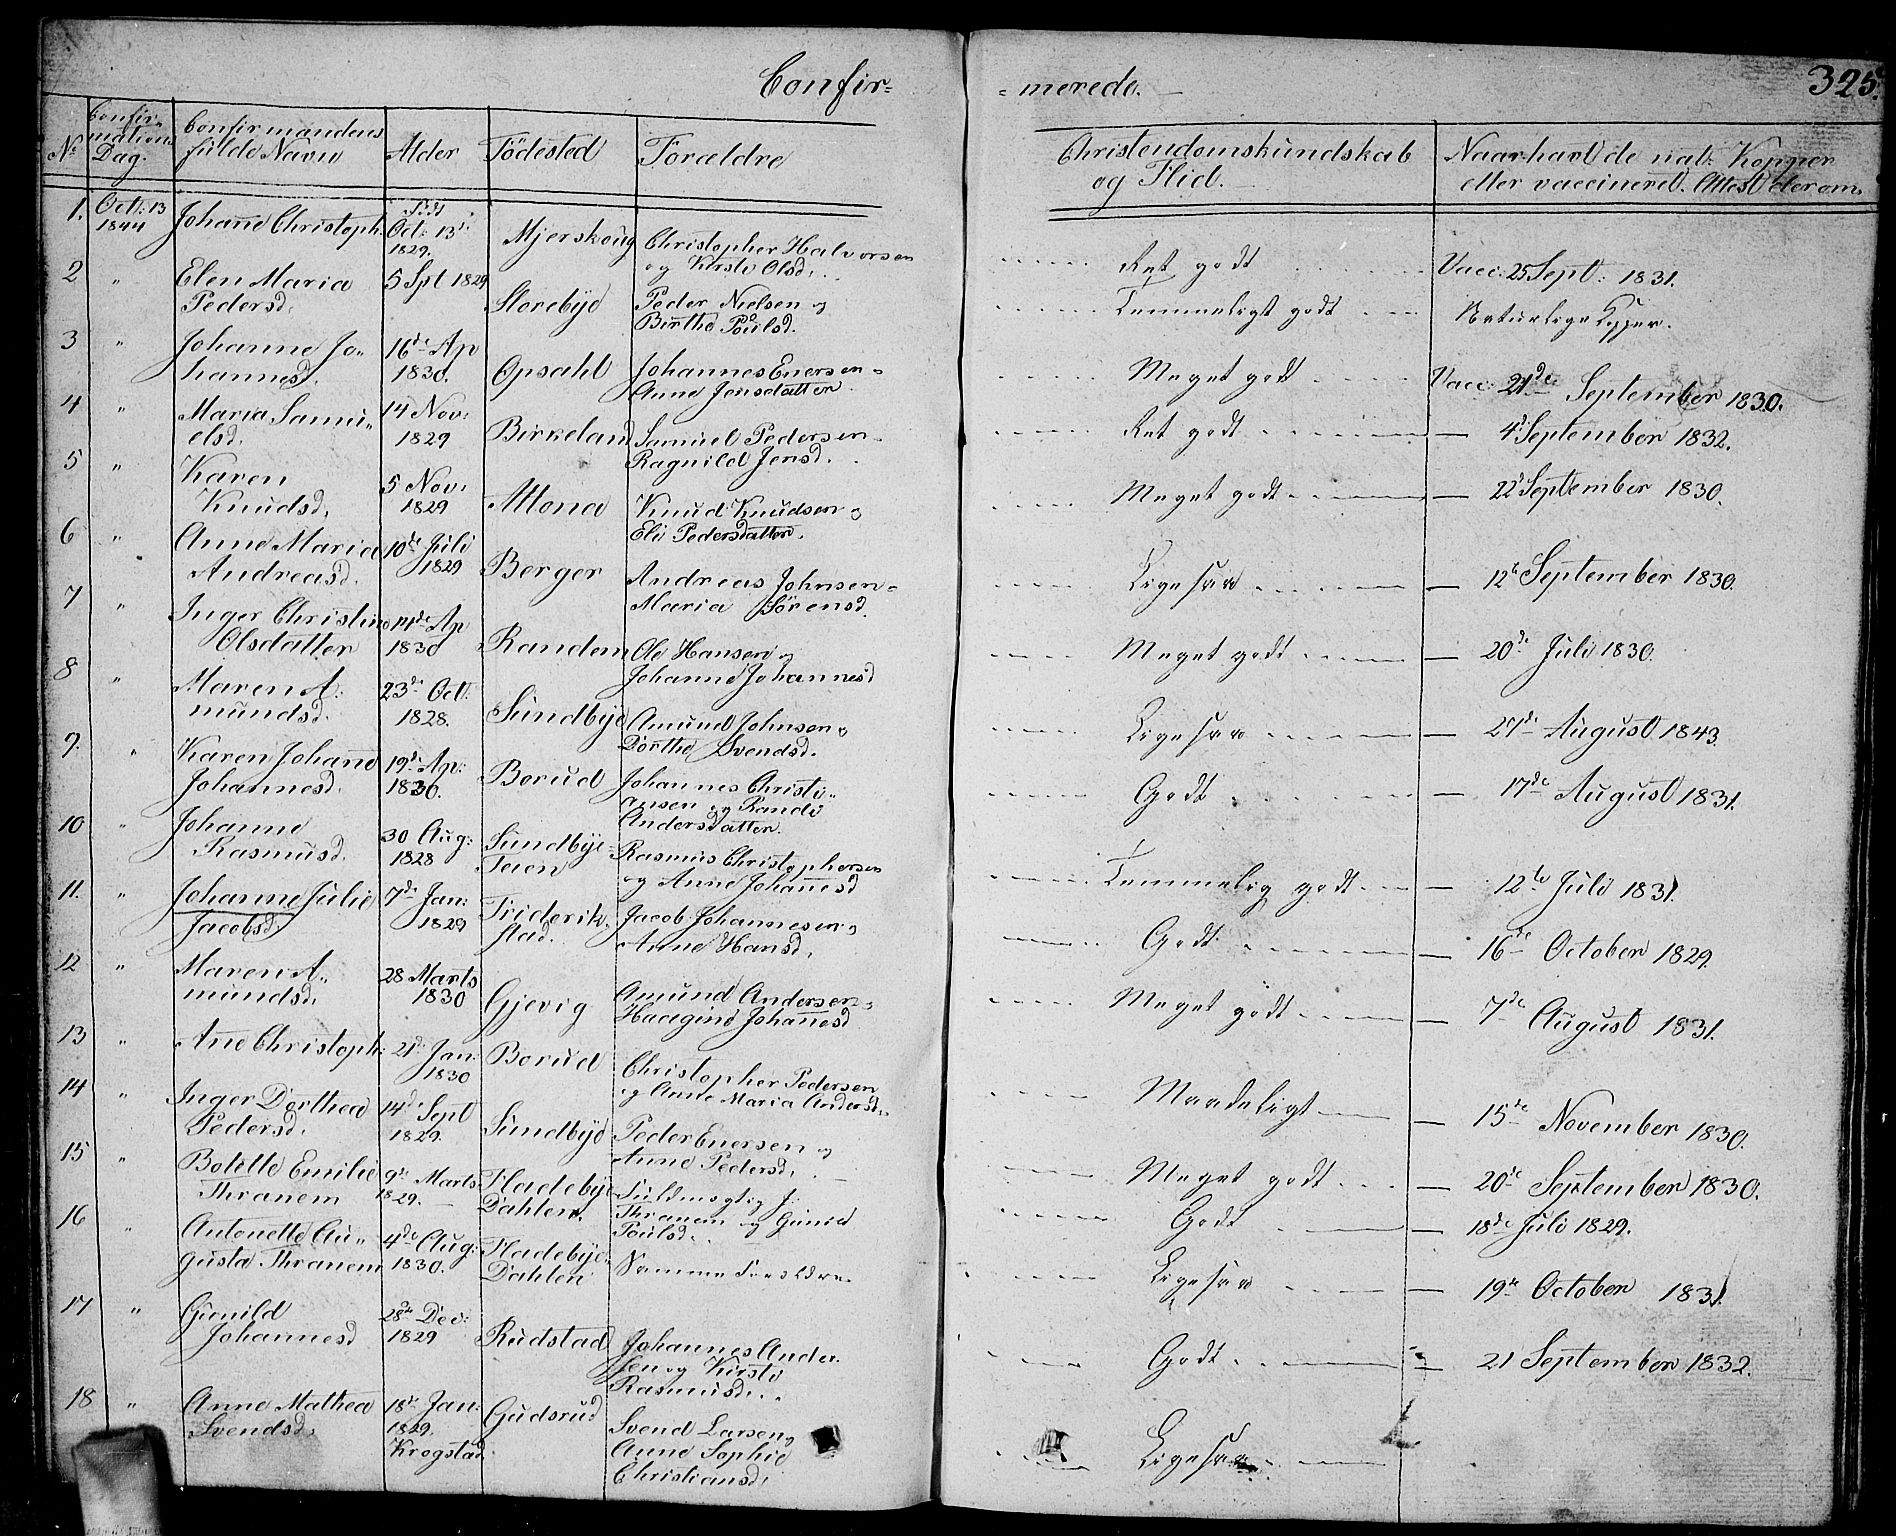 Confir=
=merede.
325.
No
Confir=
mations
Dag.
Confirmandens
fulde Navn
Alder
Födested
Forældre
Christendomskundskab
og Flid.
Naar havt de nat: Kopper
eller vaccineret. Attest derom.
1. Oct: 13 1844 Johañe Christoph. Födt Oct: 13d 1829. Mjerskoug Christopher Halvorsen
og Kirsti Olsd. Ret godt Vacc: 25 Sept: 1831.
2 " Elen Maria 5 Spt 1829 Storebye Peder Nielsen og
Pedersd. Birthe Poulsd. Temmeligt godt Naturlige Kopper.
3 " Johanne Jo= 16de Ap Opsahl Johannes Enersen=
hannesd. 1830. Anne Jensdatter Meget godt Vacc: 21de September 1830.
4 " Maria Samu= 14 Nov: Birkeland Samuel Pedersen=
elsd. 1829 Ragnild Jensd. Ret godt — 4d September 1832.
5 " Karen 5 Nov: Altona Knud Knudsen og
Knudsd. 1829 Eli Pedersdatter. Meget godt — 22d September 1830.
6 " Anne Maria 10de Juli Berger Andreas Johnsen=
Andreasd. 1829 Maria Sörensd. Ligesaa — 12te September 1830.
7 " Inger Christine 14de Ap Randem Ole Hansen og
Olsdatter 1830 Johanne Johannesd Meget godt — 20de Juli 1830.
8 " Maren A= 23de Oct. Sundbye Amund Johnsen og
mundsd. 1828. Dorthe Svendsd. Ligesaa — 27de August 1843.
9. " Karen Johañe 19de Ap: Borud Johannes Christi=
Johannesd. 1830. ansen og Randi
Andersdatter. Godt — 17de August 1831.
10 " Johanne 30 Aug: Sundbye= Rasmus Christophersen
Rasmusd. 1828 Teien og Anne Johañesd Temmelig godt — 12te Juli 1831.
11. " Johanne Julie 7de Jan: Friderik= Jacob Johannesen og
Jacobsd. 1829 stad. Anne Hansd. Godt — 16de October 1829.
12 " Maren A= 28 Marts Gjevig Amund Andersen og
mundsd. 1830 Haagine Johañesd Meget godt — 7de August 1831.
13 " Ane Christoph: 21de Jan: Borud Christopher Pedersen
1830 og Anne Maria Andersd. Maadeligt — 15de November 1830.
14 " Inger Dorthea 14de Sept Sundbye Peder Enersen og
Pedersd. 1829. Anne Pedersd. Meget godt — 20de September 1830.
15 " Botille Emilie 9de Marts Fladebye= Fuldmægtig J:
Thranem 1829. Dahlen. Thranem og Gunild
Poulsd. Godt — 18de Juli 1829.
16 " Antonette Au= 4de Aug: Fladebye=
gusta Thranem 1830. Dahlen Samme Forældre Ligesaa — 19de October 1831.
17 " Gunild 28de Dec: Rudstad Johannes Ander=
Johannesd 1829 sen og Kirsti
Rasmusd. Godt — 21 September 1832.
18 " Anne Mathea 18de Jan: Gudsrud Svend Larsen og
Svendsd. 1829. Anne Sophie
Krogstad. Christiansd. Ligesaa